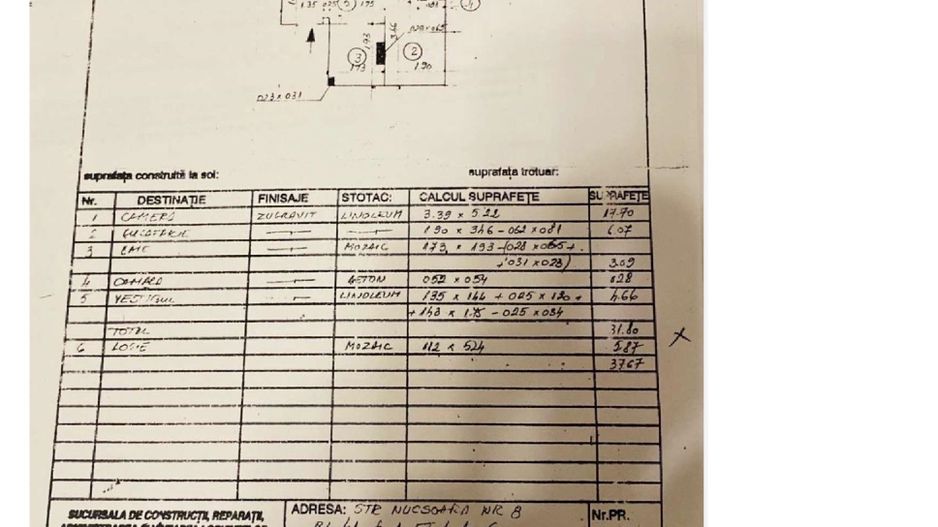 1.35 025 5 1.75 4
028×065
1.93 3.66
3 2
1.73 1.90
023×031
suprafața construită la sol: suprafața trotuar:
Nr. DESTINAȚIE FINISAJE STOTAC: CALCUL SUPRAFEȚE SUPRAFEȚE
1 CAMERĂ ZUGRAVIT LINOLEUM 3.39 × 5.22 17.70
2 1.90 × 3.46 - 062 × 081 6.07
3 BAIE MOZAIC 1.73 × 1.93 - (028 × 065 +
+ 031 × 023) 3.09
4 CĂMARĂ BETON 052 × 054 028
5 VESTIBUL LINOLEUM 1.35 × 1.44 + 025 × 1.20 + 4.66
+ 1.48 × 1.75 - 025 × 034
TOTAL 31.80
6 LOGIE MOZAIC 1.12 × 5.24 5.87
37.67
SUCURSALA DE CONSTRUCȚII, REPARAȚII, ADRESA: STR NUCSOARA NR 8 Nr.PR.